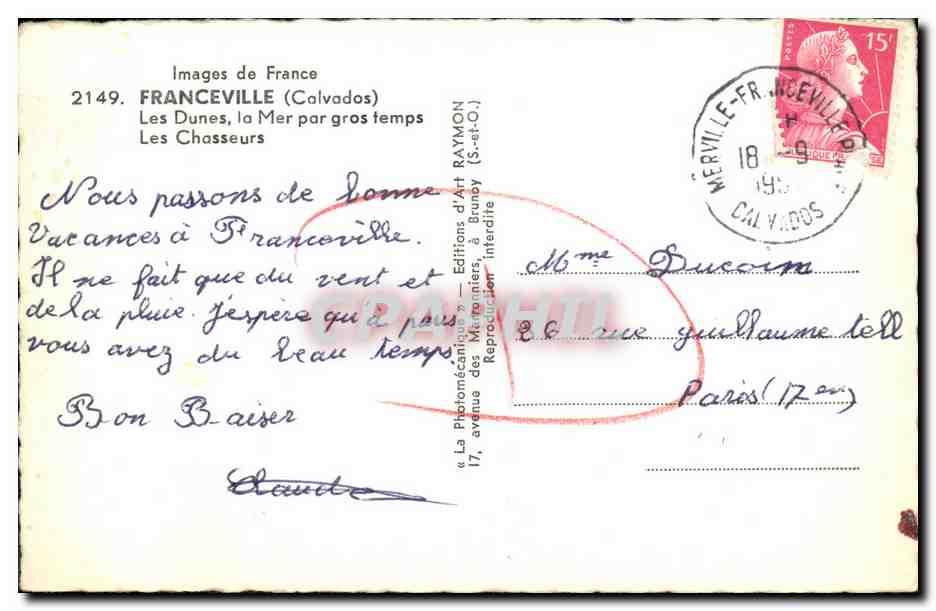 Images de France
2149. FRANCEVILLE (Calvados)
Les Dunes, la Mer par gros temps
Les Chasseurs
Nous passons de bonne
Vacances à Franceville.
Il ne fait que du vent et
de la pluie. J'éspère qu'à paris
vous avez du beau temps.
Bon Baiser
Claude
« La Photomécanique » — Editions d'Art RAYMON
17, avenue des Marronniers, à Brunoy (S.-et-O.)
Reproduction interdite
POSTES 15F
MERVILLE-FRANCEVILLE PLAGE
18 -9
195
CALVADOS
Mme Ducoim
26 rue guillaume tell
Paris (17 em)
CPAPHIL